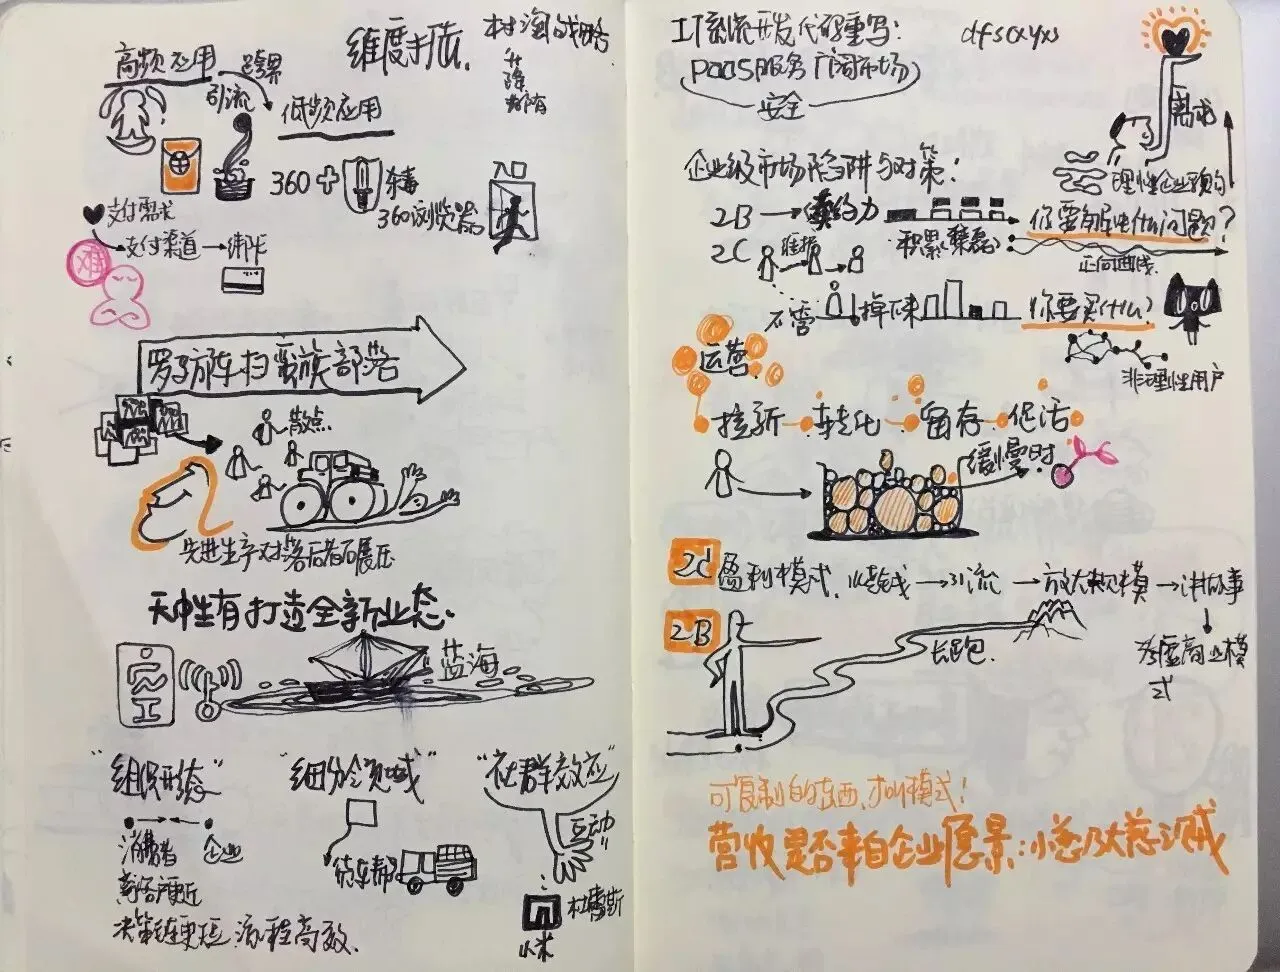 维度打击.
村淘战略
升
降
高频应用
跨界
引流
低频应用
360+
杀毒
360浏览器
支付需求
支付渠道→绑卡
难
罗马方阵扫蛮族部落
散点
先进生产对落后者碾压
天中生有打造全新业态.
蓝海
工
"组织形态"
消费者
企业
离客户更近
决策链更短.流程高效.
"细分领域"
货车帮
"社群效应"
互动
杜蕾斯
小米
工厂系统开发代码重写:
dfscxyxs
PaaS服务
安全
需求
企业级市场陷阱与对策:
理性企业预购
2B
契约力
你要解决什么问题?
2C
维护
积累
正向曲线.
不管
掉下来
你要买什么?
非理性用户
运营
拉新
转化
留存
促活
缓慢时
2C
盈利模式.
烧钱→引流→放大规模→讲故事
2B
长跑.
为虚商业模
式
可复制的东西.才叫模式!
营收是否来自企业愿景: